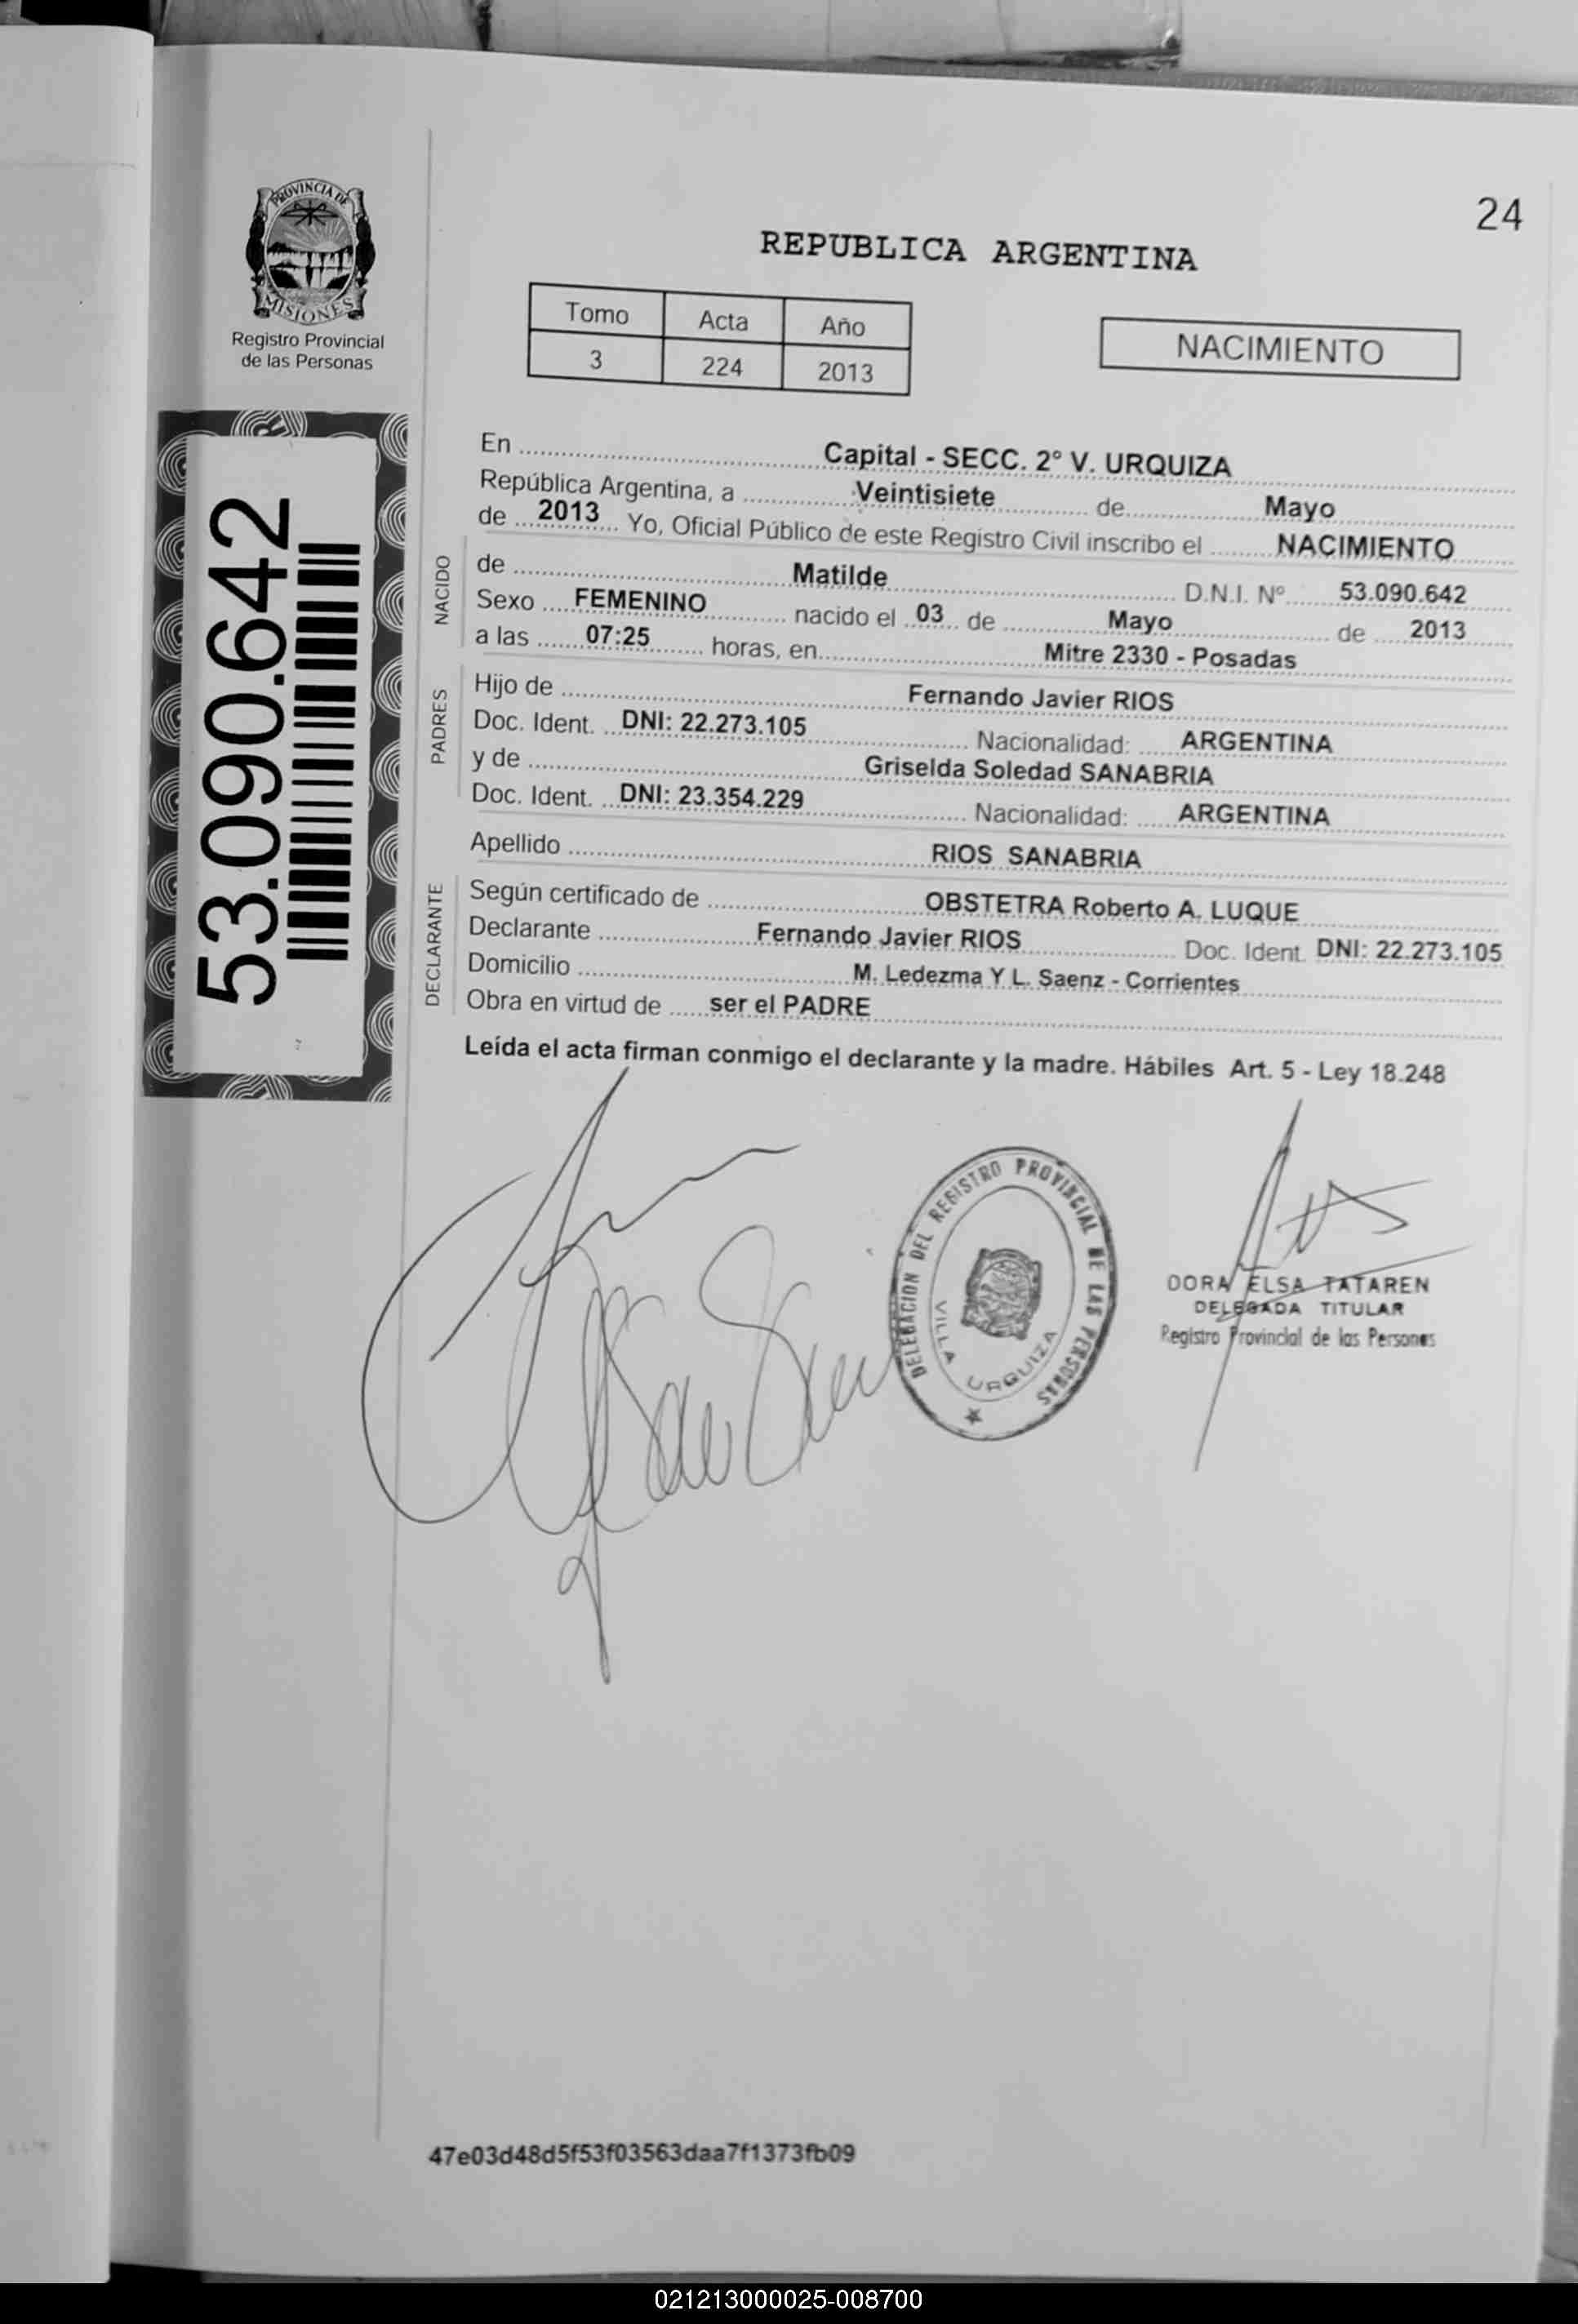 24
PROVINCIA DE
MISIONES
Registro Provincial
de las Personas
REPUBLICA ARGENTINA
Tomo Acta Año
3 224 2013
NACIMIENTO
53.090.642
En Capital - SECC. 2º V. URQUIZA
República Argentina, a Veintisiete de Mayo
de 2013 Yo, Oficial Público de este Registro Civil inscribo el NACIMIENTO
NACIDO
de Matilde D.N.I. Nº 53.090.642
Sexo FEMENINO nacido el 03 de Mayo de 2013
a las 07:25 horas, en Mitre 2330 - Posadas
PADRES
Hijo de Fernando Javier RIOS
Doc. Ident. DNI: 22.273.105 Nacionalidad: ARGENTINA
y de Griselda Soledad SANABRIA
Doc. Ident. DNI: 23.354.229 Nacionalidad: ARGENTINA
Apellido RIOS SANABRIA
DECLARANTE
Según certificado de OBSTETRA Roberto A. LUQUE
Declarante Fernando Javier RIOS Doc. Ident. DNI: 22.273.105
Domicilio M. Ledezma Y L. Saenz - Corrientes
Obra en virtud de ser el PADRE
Leída el acta firman conmigo el declarante y la madre. Hábiles Art. 5 - Ley 18.248
DELEGACION DEL REGISTRO PROVINCIAL DE LAS PERSONAS
VILLA URQUIZA
DORA ELSA TATAREN
DELEGADA TITULAR
Registro Provincial de las Personas
47e03d48d5f53f03563daa7f1373fb09
021213000025-008700